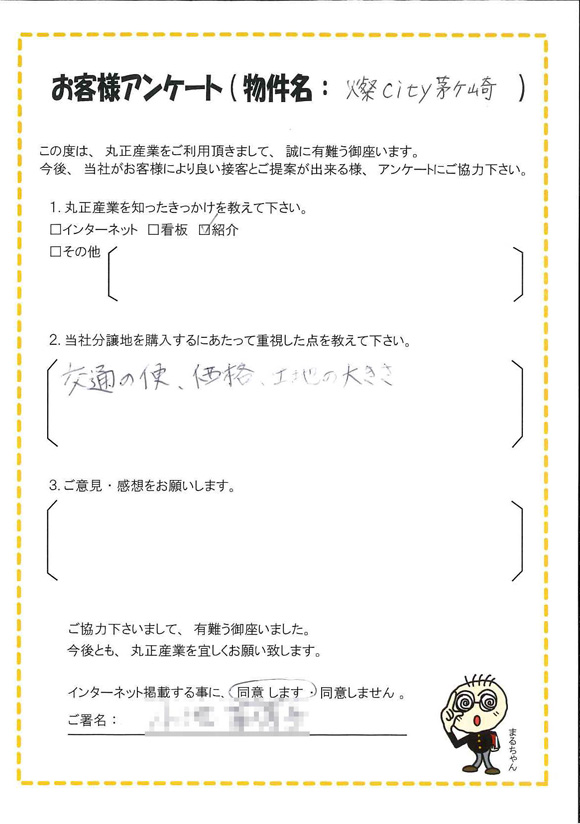 お客様アンケート ( 物件名 : 燦city茅ケ崎 )
この度は、丸正産業をご利用頂きまして、誠に有難う御座います。
今後、当社がお客様により良い接客とご提案が出来る様、アンケートにご協力下さい。
1. 丸正産業を知ったきっかけを教えて下さい。
□インターネット □看板 ☑紹介
□その他
2. 当社分譲地を購入するにあたって重視した点を教えて下さい。
交通の便、価格、土地の大きさ
3. ご意見・感想をお願いします。
ご協力下さいまして、有難う御座いました。
今後とも、丸正産業を宜しくお願い致します。
インターネット掲載する事に、同意します・同意しません。
ご署名:
まるちゃん